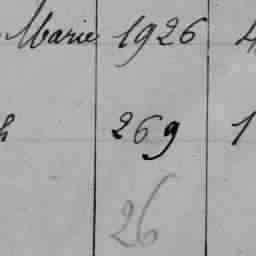 Marie 1926 4
h 269 1
26